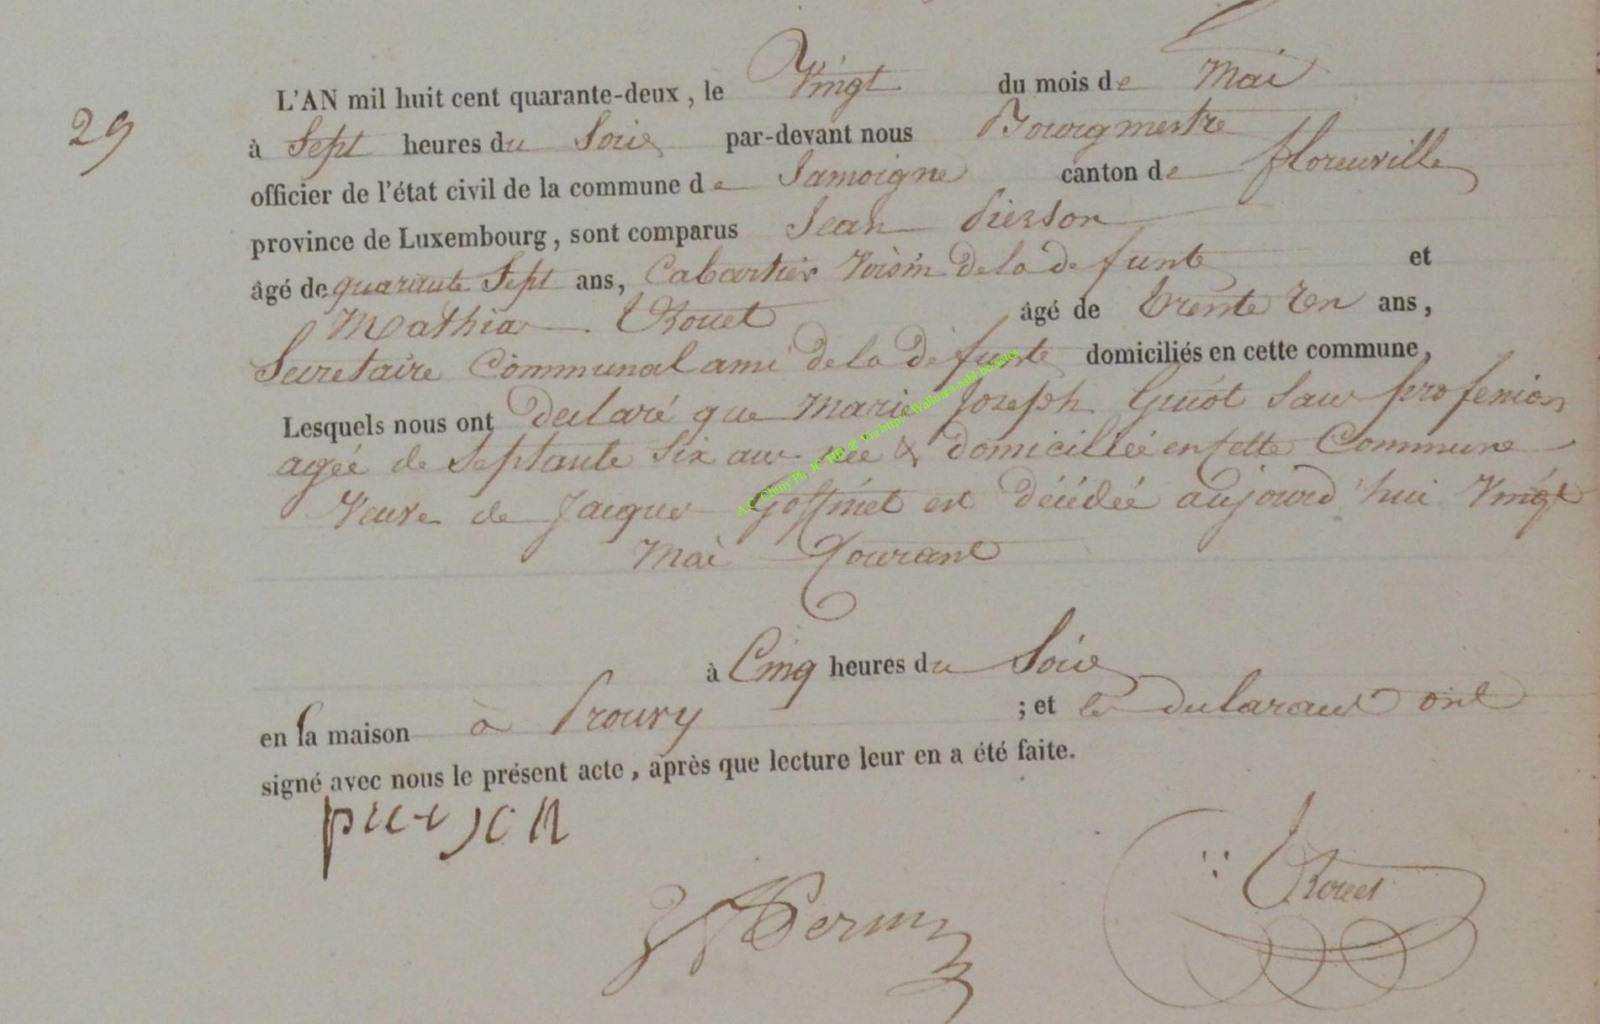 29
L'AN mil huit cent quarante-deux, le Vingt du mois de Mai
à Sept heures du Soir par-devant nous Bourgmestre
officier de l'état civil de la commune de Jamoigne canton de florenville
province de Luxembourg, sont comparus Jean Pierson
âgé de quarante Sept ans, Cabartier Voisin de la defunte et
Mathias Rouet âgé de trente Un ans,
Secretaire Communal ami de la defunte domiciliés en cette commune,
Lesquels nous ont declaré que Marie Joseph Guiot Sans profession
agée de Septante Six ans née & domiciliée en Cette Commune
Veuve de Jacques Goffinet est décédée aujourd'hui Vingt
Mai Courant
à Cinq heures du Soir
en sa maison à Prouvy ; et les declarants ont
signé avec nous le présent acte, après que lecture leur en a été faite.
pierson
Rouet